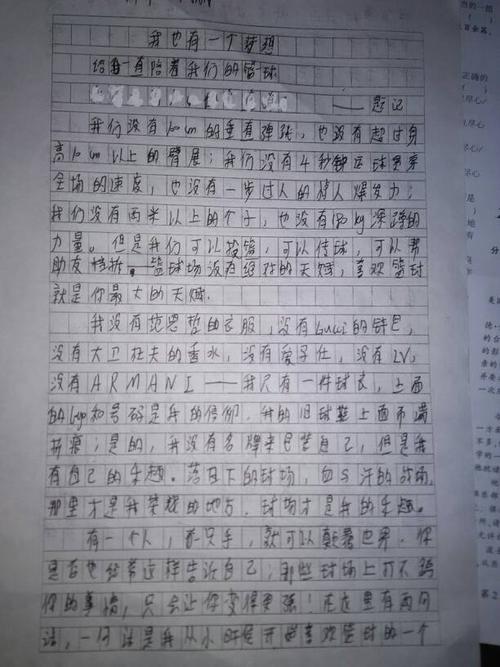 我也有一个梦想
给一直陪着我们的篮球
——题记
我们没有100cm的垂直弹跳，也没有超过身
高10cm以上的臂展；我们没有4秒钟运球
全场的速度，也没有一步过人的惊人爆发力；
我们没有两米以上的个子，也没有180kg深蹲的
力量。但是我们可以投篮，可以传球，可以帮
助友挡拆。篮球场没有绝对的天赋，喜欢篮球
就是你最大的天赋。
我没有范思哲的衣服，没有Gucci的钱包，
没有大卫杜夫的香水，没有爱马仕，没有LV，
没有ARMANI——我只有一件球衣，上面
的logo和号码是我的信仰。我的旧球鞋上面布满
折痕；是的，我没有名牌来包装自己，但是我
有自己的乐趣。落日下的球场，血与汗的战场，
那里才是我荣耀的地方，球场才是我的乐趣。
有一个人，一只手，就可以颠覆世界。你
是否也经常这样告诉自己；那些球场上打不死
你的事情，只会让你变得更强！在这里有两句
话，一句话是我从小时候开始喜欢篮球的一个
当的一组
正确的